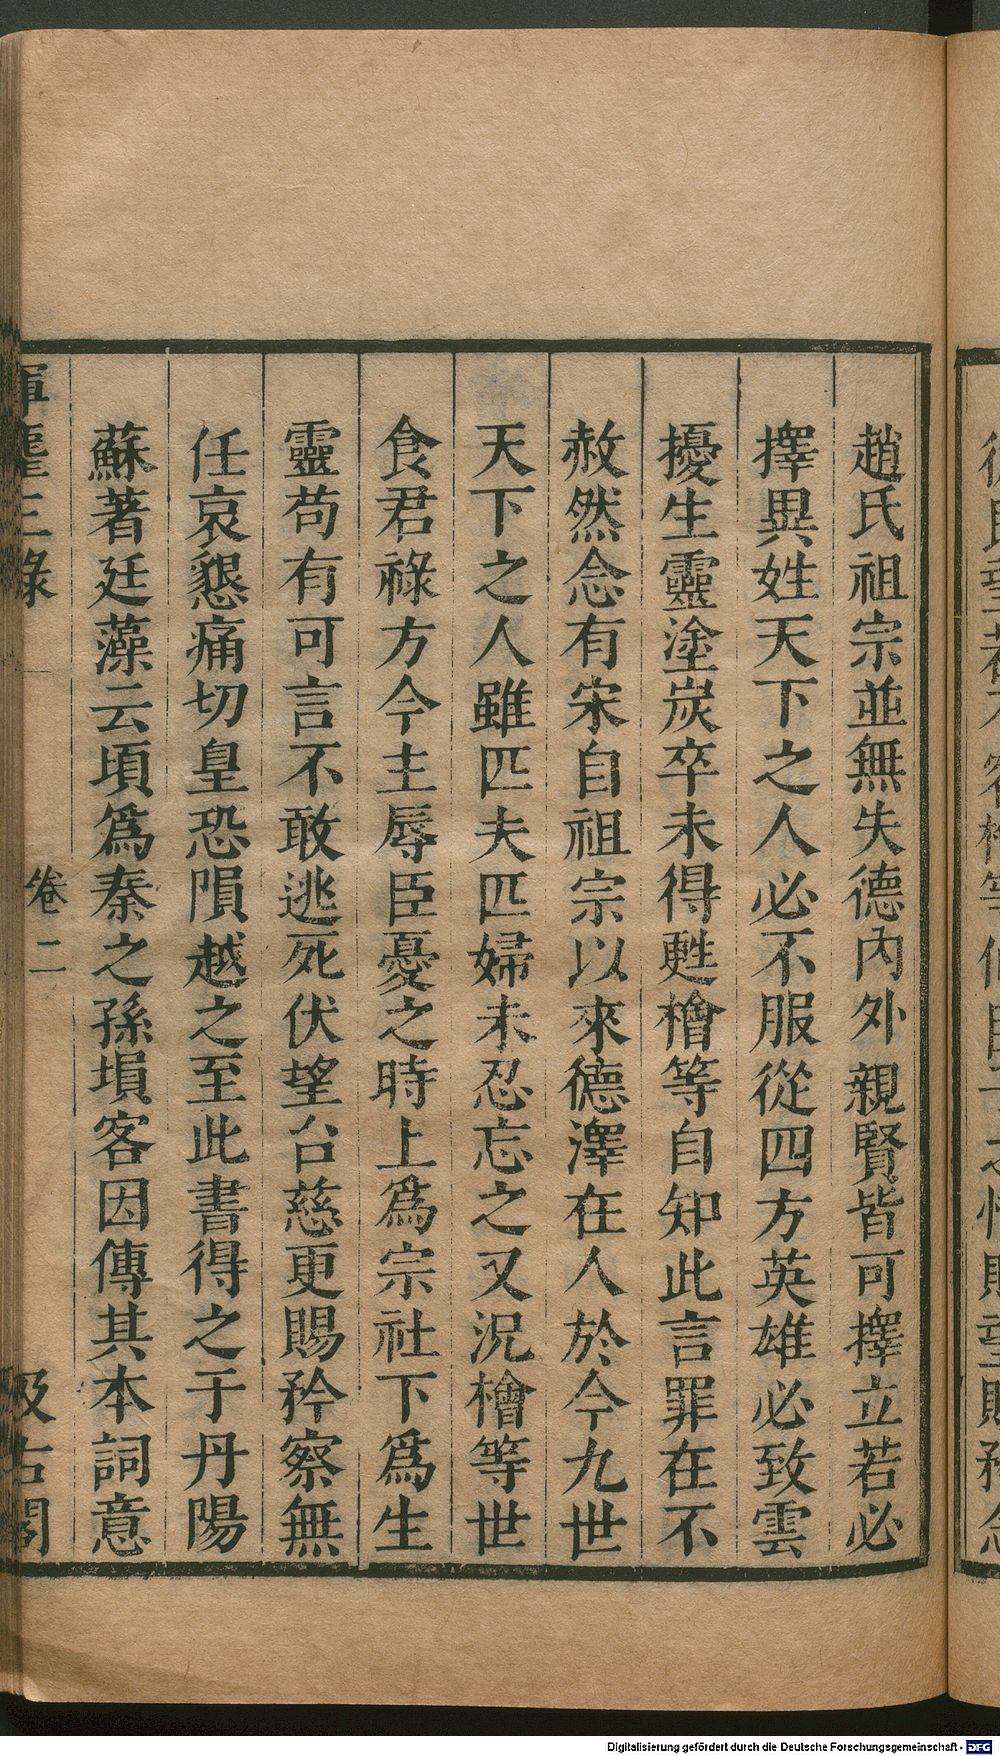 趙氏祖宗並無失德內外親賢皆可擇立若必
擇異姓天下之人必不服從四方英雄必致雲
擾生靈塗炭卒未得甦檜等自知此言罪在不
赦然念有宋自祖宗以來德澤在人於今九世
天下之人雖匹夫匹婦未忍忘之又況檜等世
食君祿方今主辱臣憂之時上爲宗社下爲生
靈苟有可言不敢逃死伏望台慈更賜矜察無
任哀懇痛切皇恐隕越之至此書得之于丹陽
蘇著廷藻云頃爲秦之孫塤客因傳其本詞意
三錄
卷二
汲古閣
Digitalisierung gefördert durch die Deutsche Forschungsgemeinschaft - DFG